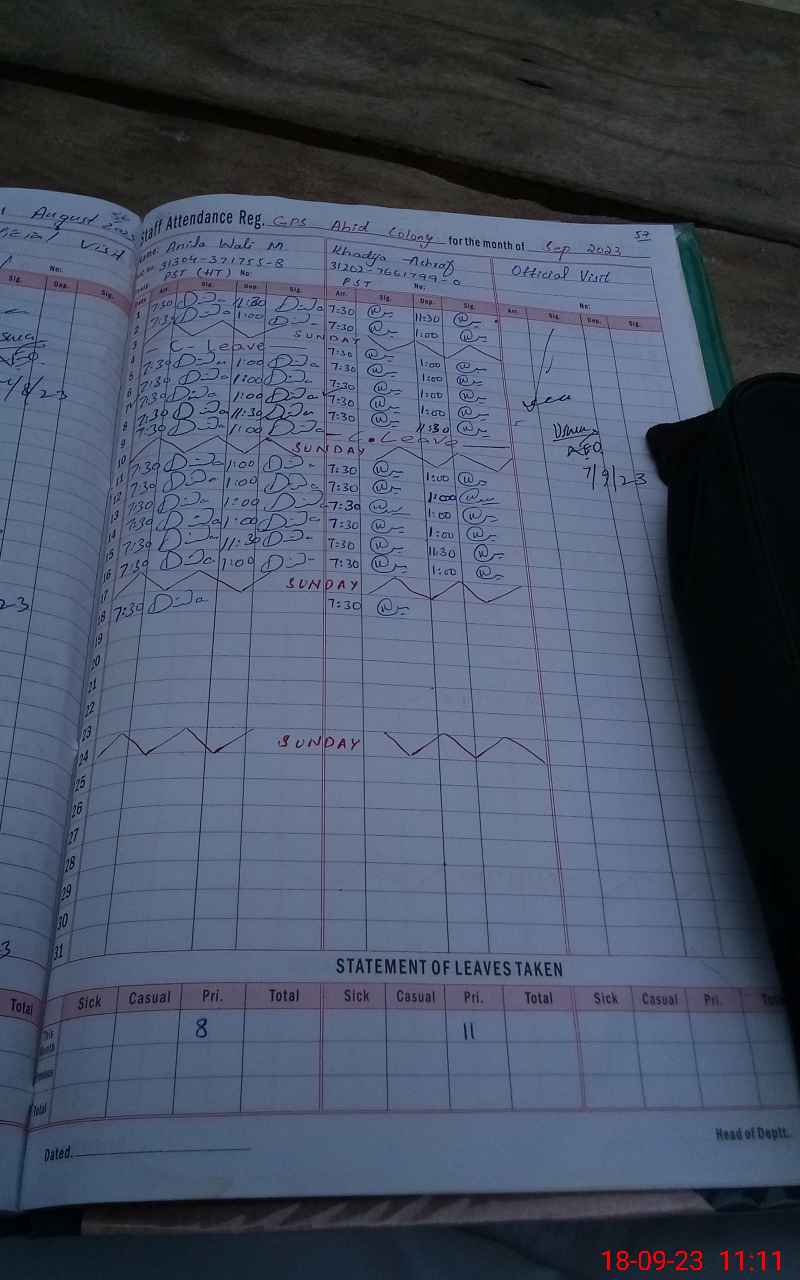 August
2023
Official Visit
Staff Attendance Reg. GPS Abid Colony for the month of Sep 2023
57
Anida Wali M
31304-371755-8
PST (HT) No:
Khadija Ashraf
31202-7661799-0
PST No:
Official Visit
No:
Arr. Sig. Dep. Sig. Arr. Sig. Dep. Sig. Arr. Sig. Dep. Sig.
1 7:30 11:30 7:30 11:30
2 7:30 1:00 7:30 1:00
3 SUNDAY
4 C- Leave 7:30 1:00
5 7:30 1:00 7:30 1:00
6 7:30 1:00 7:30 1:00
7 7:30 1:00 7:30 1:00
8 7:30 11:30 7:30 11:30
9 7:30 1:00 C. Leave
10 SUNDAY
11 7:30 1:00 7:30 1:00
12 7:30 1:00 7:30 1:00
13 7:30 1:00 7:30 1:00
14 7:30 1:00 7:30 1:00
15 7:30 11:30 7:30 11:30
16 7:30 1:00 7:30 1:00
17 SUNDAY
18 7:30 7:30
AEO
7/9/23
19
20
21
22
23
24 SUNDAY
25
26
27
28
29
30
31
STATEMENT OF LEAVES TAKEN
Total Sick Casual Pri. Total Sick Casual Pri. Total Sick Casual Pri. Total
This Month 8 11
Total
Dated.
Head of Deptt.
18-09-23 11:11